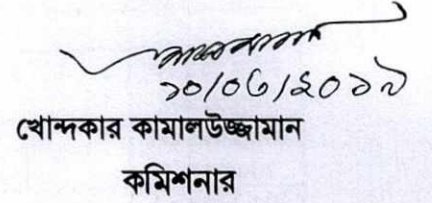 ১০/০৬/২০১৯
খোন্দকার কামালউজ্জামান
কমিশনার